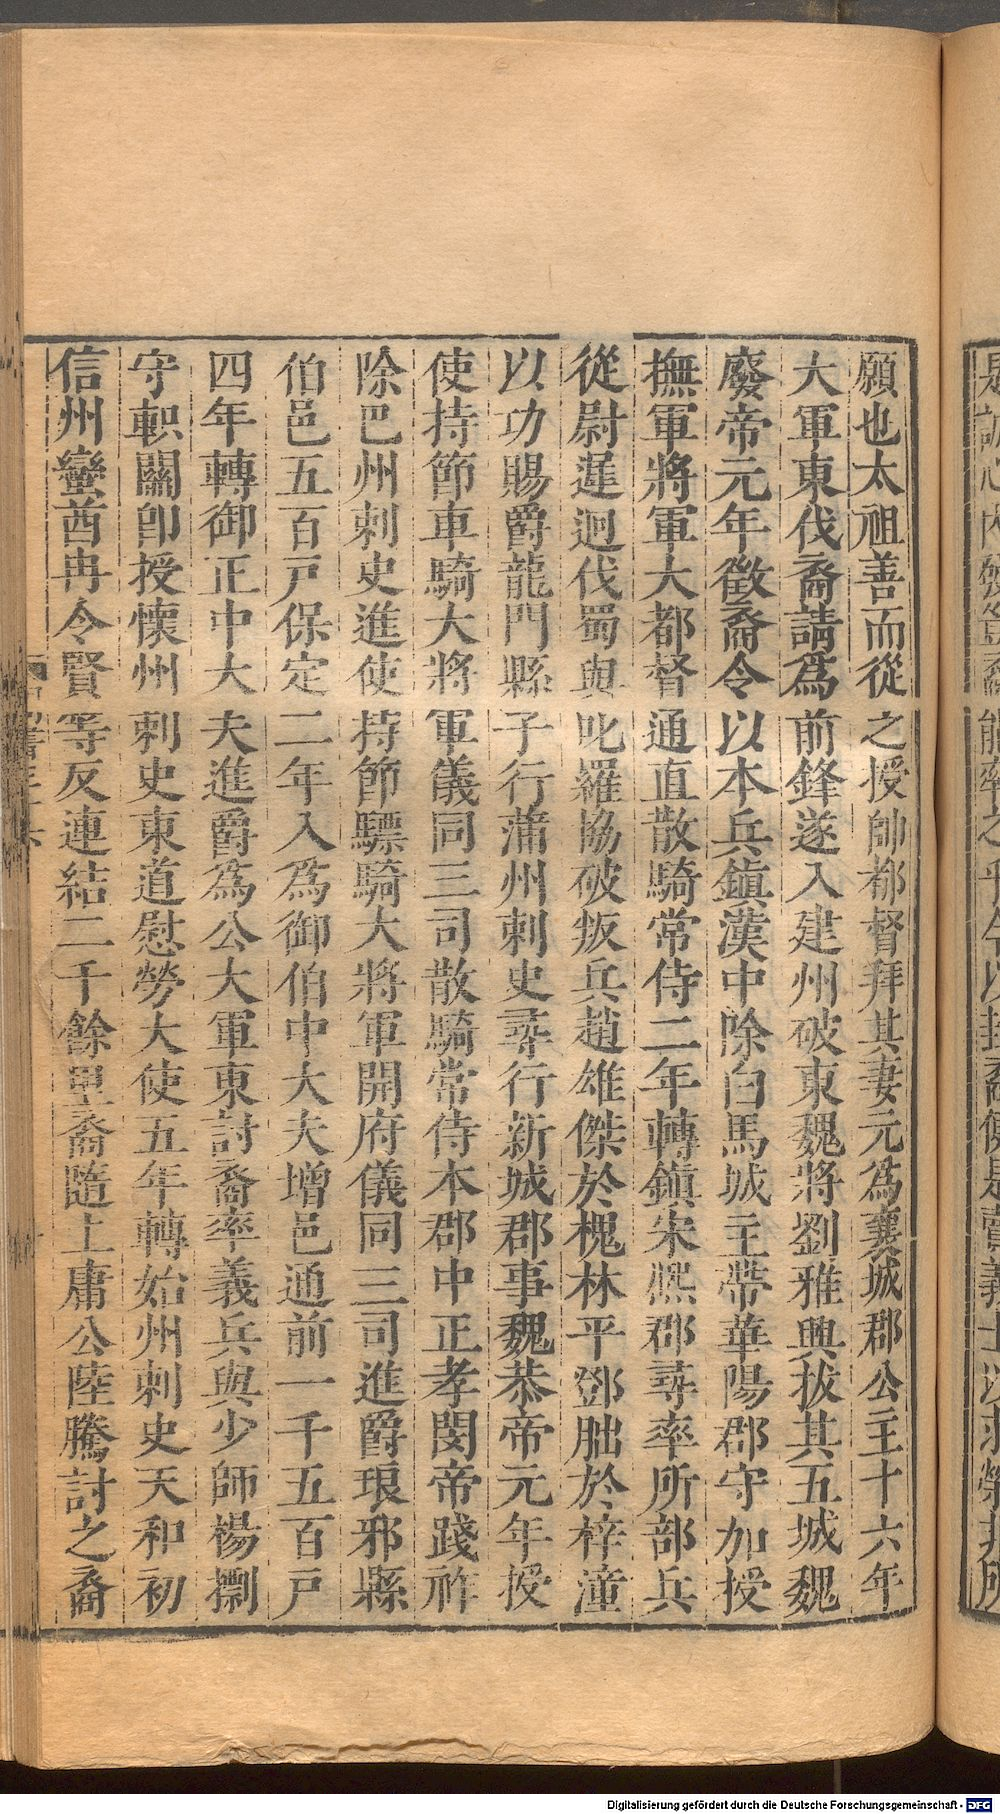 願也太祖善而從之授帥都督拜其妻元爲襄城郡公主十六年
大軍東伐裔請爲前鋒遂入建州破東魏將劉雅興拔其五城魏
廢帝元年徵裔令以本兵鎮漢中除白馬城主帶華陽郡守加授
撫軍將軍大都督通直散騎常侍二年轉鎮宋熙郡尋率所部兵
從尉遲迥伐蜀與叱羅協破叛兵趙雄傑於槐林平鄧朏於梓潼
以功賜爵龍門縣子行蒲州刺史尋行新城郡事魏恭帝元年授
使持節車騎大將軍儀同三司散騎常侍本郡中正孝閔帝踐祚
除巴州刺史進使持節驃騎大將軍開府儀同三司進爵琅邪縣
伯邑五百戸保定二年入爲御伯中大夫增邑通前一千五百戸
四年轉御正中大夫進爵爲公大軍東討裔率義兵與少師楊摽
守軹關卽授懷州刺史東道慰勞大使五年轉始州刺史天和初
信州蠻酋冉令賢等反連結二千餘里裔隨上庸公陸騰討之裔
Digitalisierung gefördert durch die Deutsche Forschungsgemeinschaft - DFG